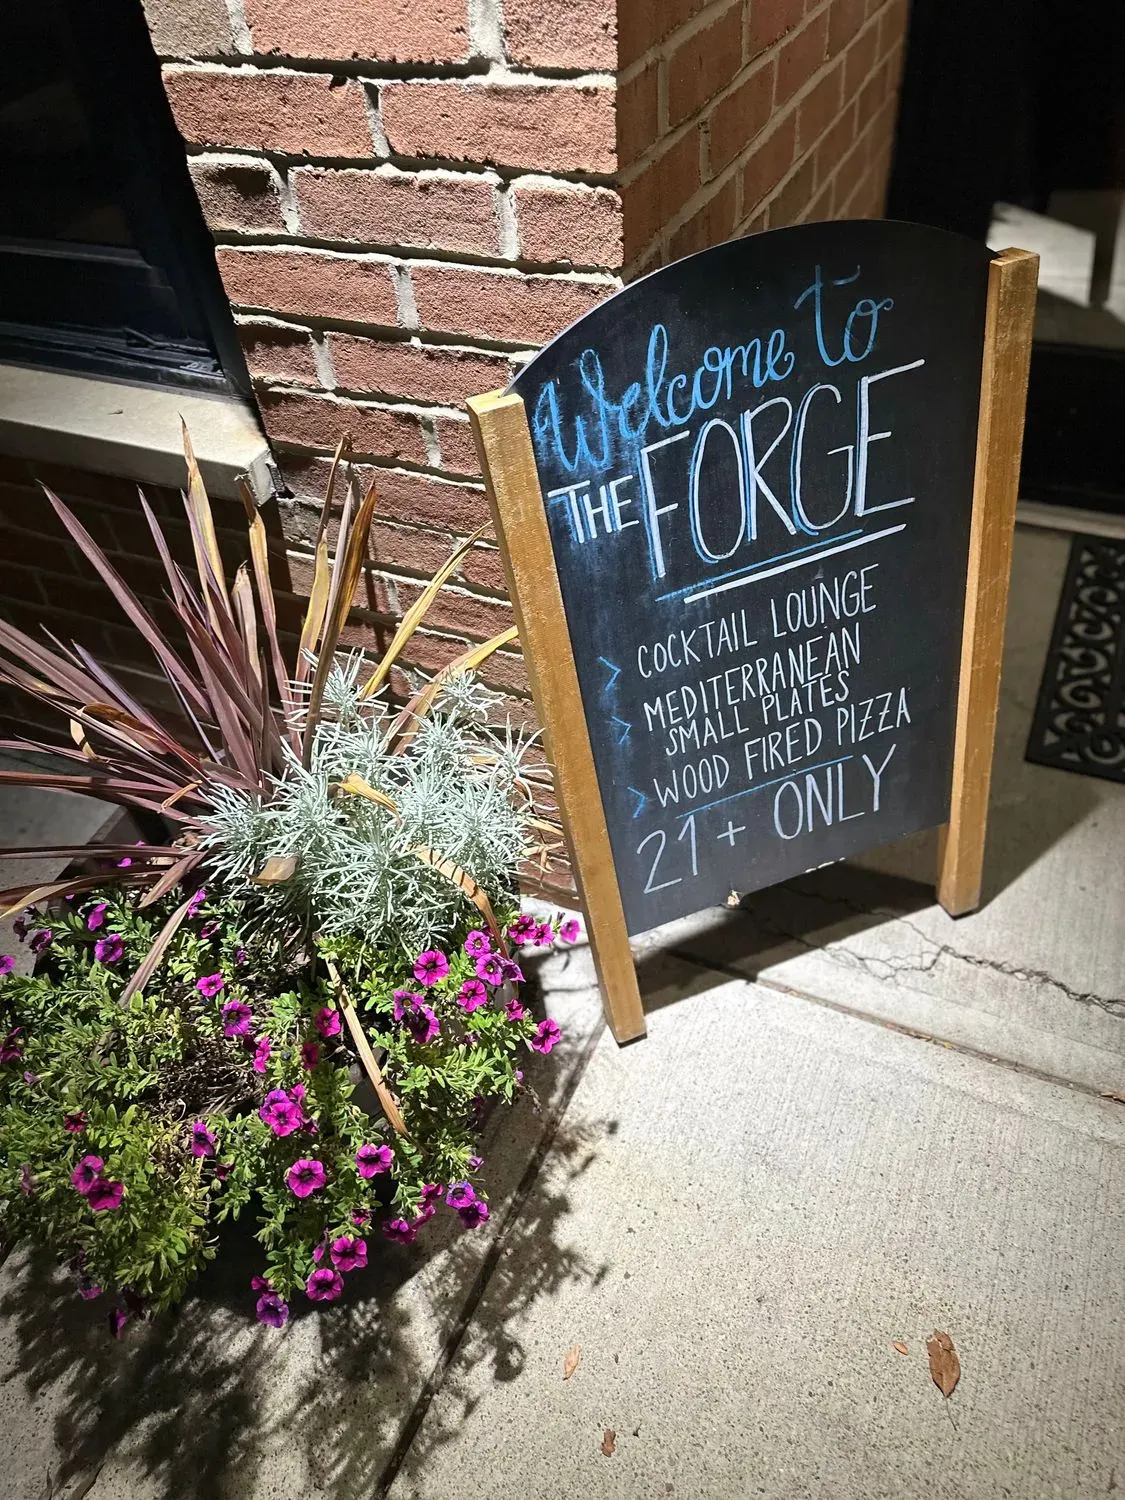 Welcome to
THE FORGE
> COCKTAIL LOUNGE
> MEDITERRANEAN
SMALL PLATES
> WOOD FIRED PIZZA
21+ ONLY